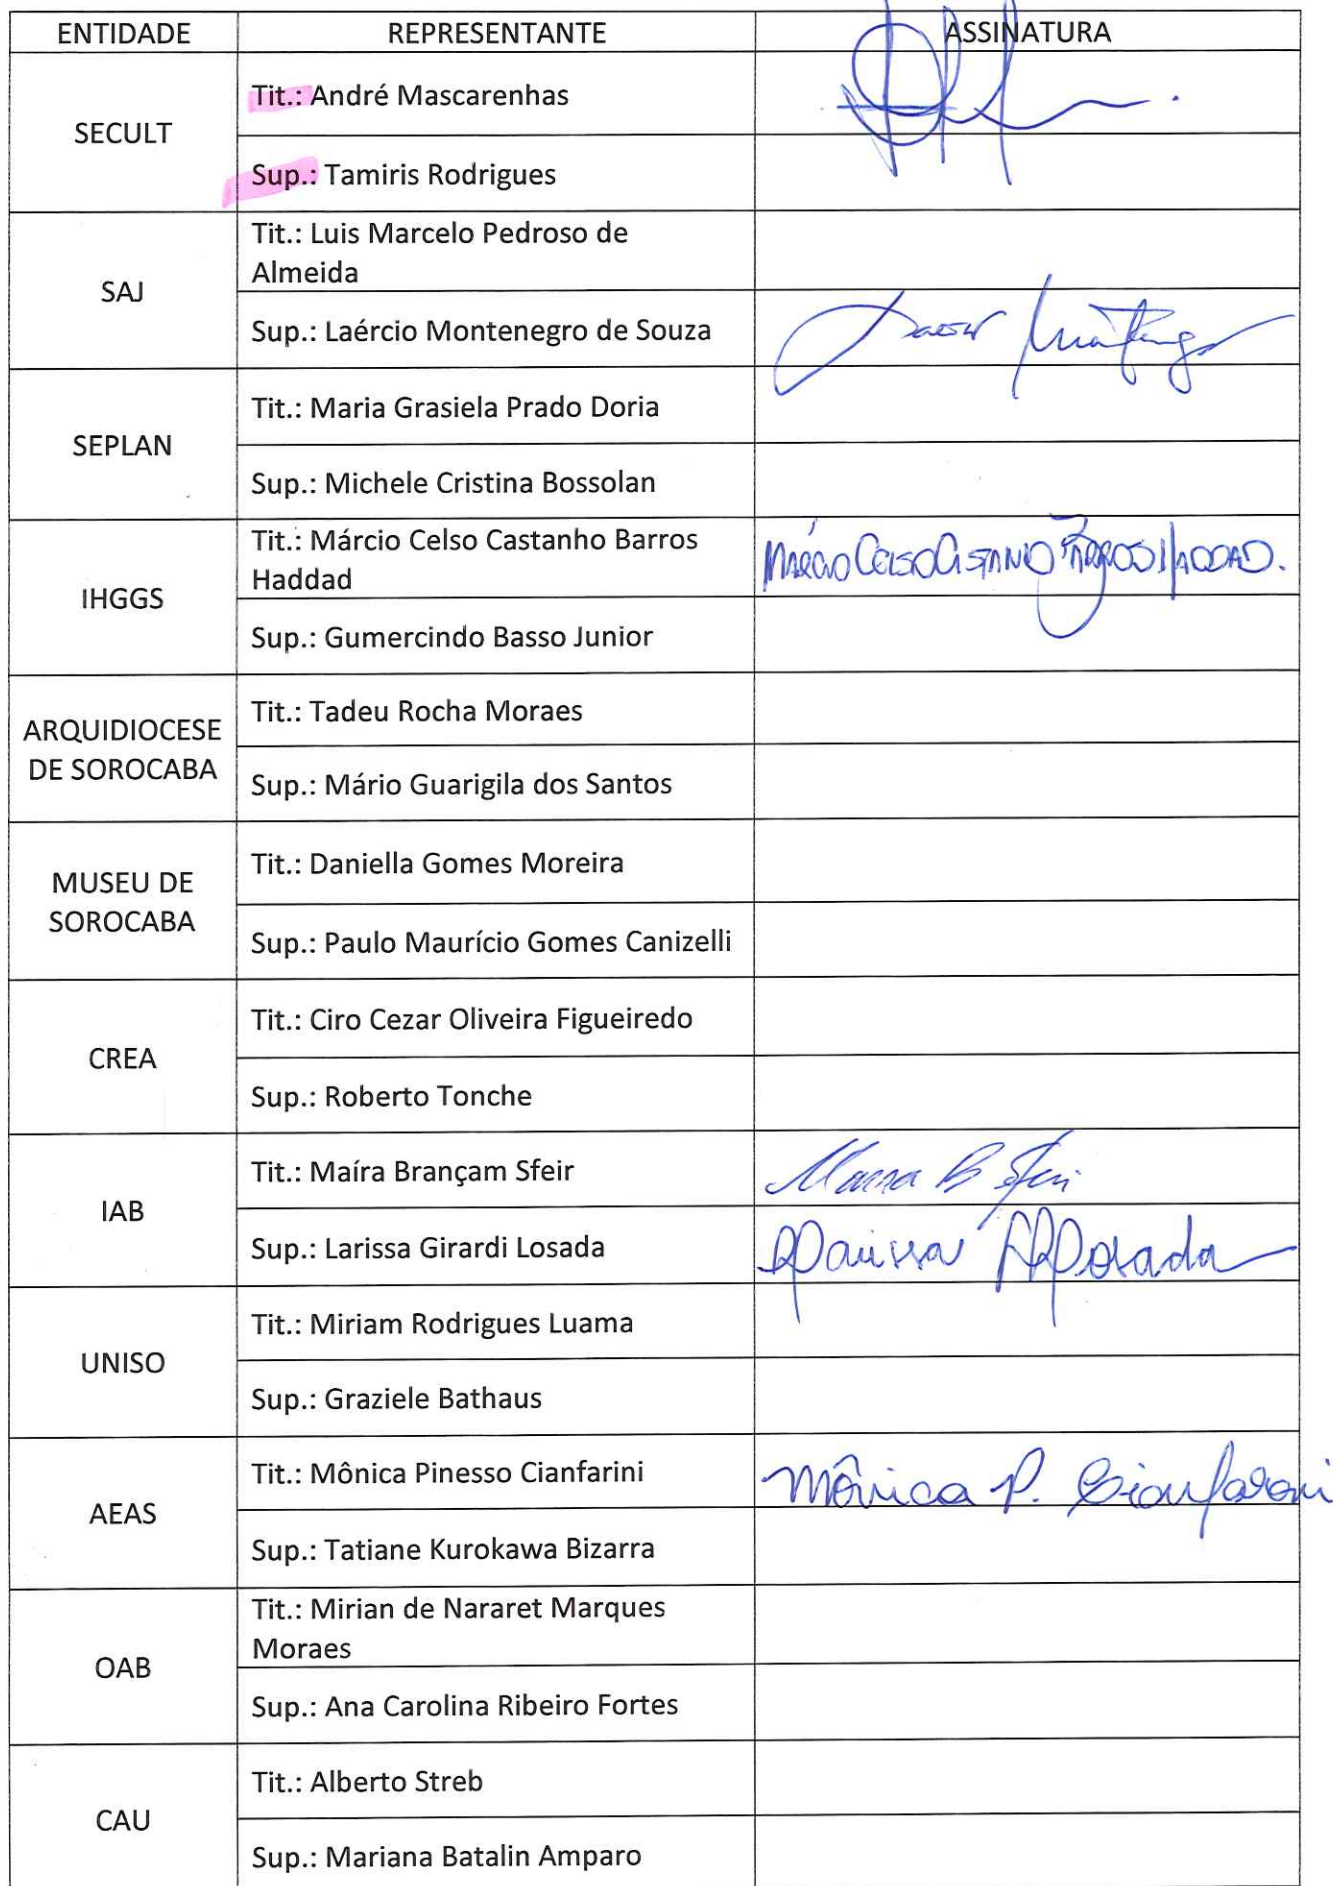 ENTIDADE REPRESENTANTE ASSINATURA
SECULT
Tit.: André Mascarenhas
Sup.: Tamiris Rodrigues
SAJ
Tit.: Luis Marcelo Pedroso de
Almeida
Sup.: Laércio Montenegro de Souza
SEPLAN
Tit.: Maria Grasiela Prado Doria
Sup.: Michele Cristina Bossolan
IHGGS
Tit.: Márcio Celso Castanho Barros
Haddad
MÁRCIO CELSO CASTANHO BARROS HADDAD.
Sup.: Gumercindo Basso Junior
ARQUIDIOCESE
DE SOROCABA
Tit.: Tadeu Rocha Moraes
Sup.: Mário Guarigila dos Santos
MUSEU DE
SOROCABA
Tit.: Daniella Gomes Moreira
Sup.: Paulo Maurício Gomes Canizelli
CREA
Tit.: Ciro Cezar Oliveira Figueiredo
Sup.: Roberto Tonche
IAB
Tit.: Maíra Brançam Sfeir
Maira B Sfeir
Sup.: Larissa Girardi Losada
Larissa Losada
UNISO
Tit.: Miriam Rodrigues Luama
Sup.: Graziele Bathaus
AEAS
Tit.: Mônica Pinesso Cianfarini
Mônica P. Cianfarani
Sup.: Tatiane Kurokawa Bizarra
OAB
Tit.: Mirian de Nararet Marques
Moraes
Sup.: Ana Carolina Ribeiro Fortes
CAU
Tit.: Alberto Streb
Sup.: Mariana Batalin Amparo